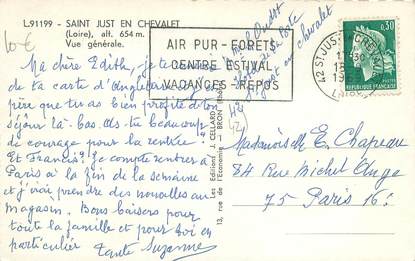 L.91199 - SAINT JUST EN CHEVALET
(Loire), alt. 654 m.
Vue générale.
10 €
AIR PUR - FORETS
CENTRE ESTIVAL
VACANCES - REPOS
42 ST JUST-EN-CHEVALET
LOIRE
0,30
REPUBLIQUE FRANCAISE
Ma chère Edith, je te
de ta carte d'Angleterre
père que tu as bien profité de ton
séjour là-bas. As-tu beaucoup
de courage pour la rentrée ?
Et Francis ? Je compte rentrer à
Paris à la fin de la semaine
et j'irai prendre des nouvelles au
magasin. Bons baisers pour
toute la famille et pour toi en
particulier
Tante Suzanne
de la Poste
St Just en chevalet
42
Mademoiselle E. Chapeau
84 Rue Michel Ange
75 Paris 16e